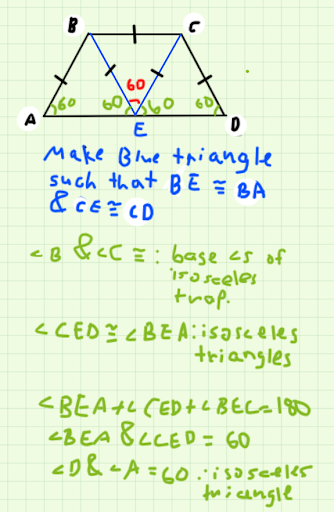 B
C
60
60
60
60
60
A
E
D
Make Blue triangle
such that BE ≅ BA
& CE ≅ CD
∠B & ∠C ≅ : base ∠s of
isosceles
trap.
∠CED ≅ ∠BEA : isosceles
triangles
∠BEA + ∠CED + ∠BEC = 180
∠BEA & ∠CED = 60
∠D & ∠A = 60 ∴ isosceles
triangle